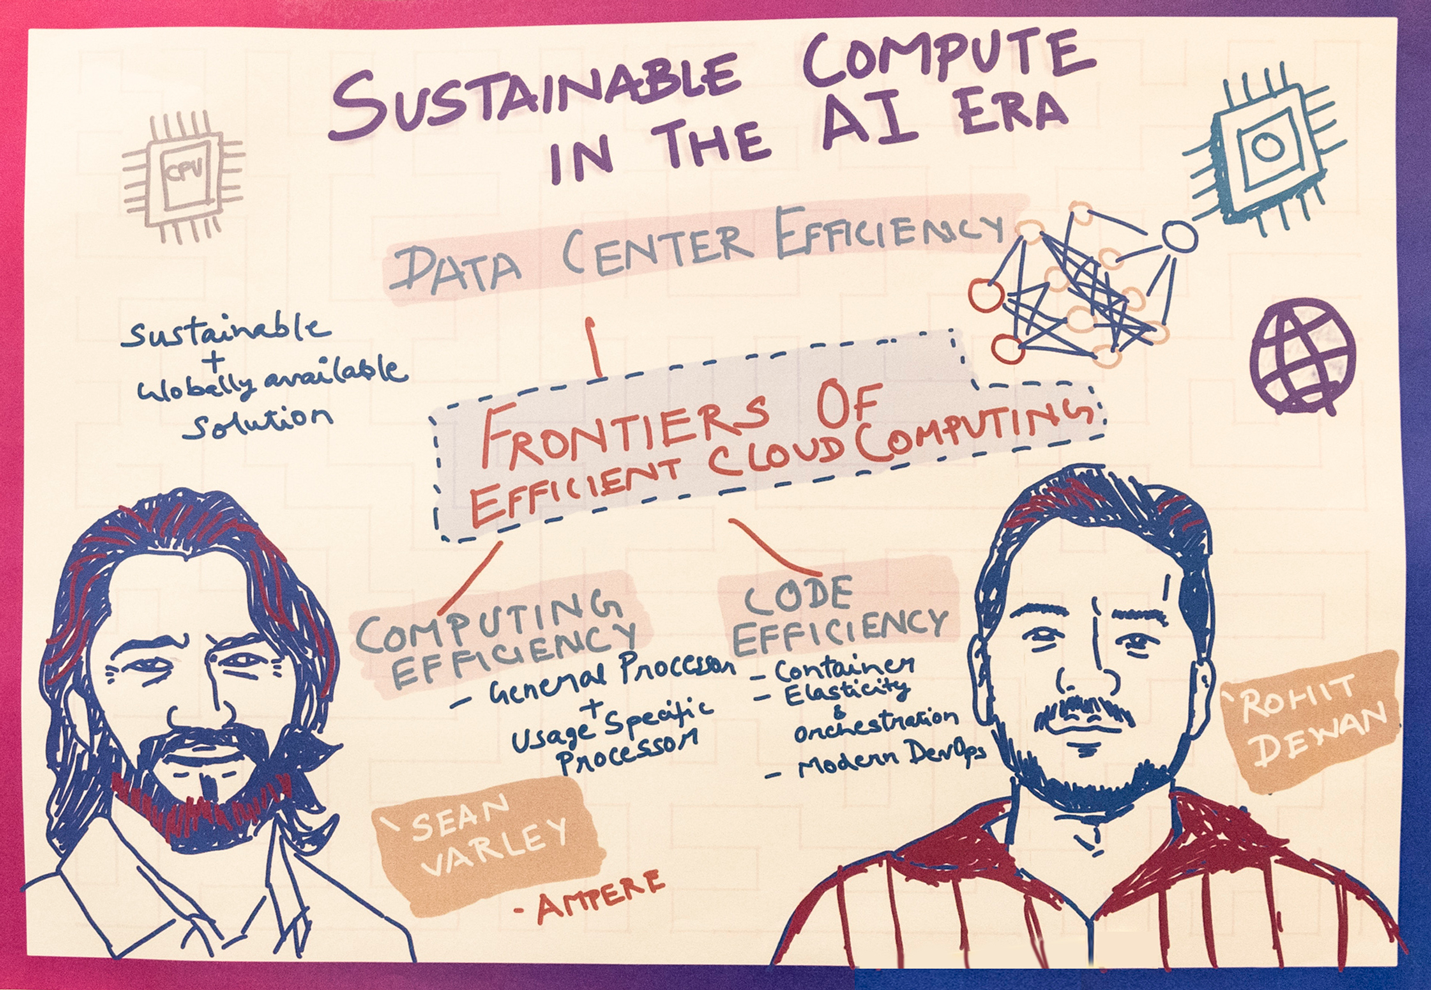 SUSTAINABLE COMPUTE
IN THE AI ERA
CPU
DATA CENTER EFFICIENCY
Sustainable
+
Globally available
Solution
FRONTIERS OF
EFFICIENT CLOUD COMPUTING
COMPUTING
EFFICIENCY
- General Processor
+
Usage Specific
Processor
CODE
EFFICIENCY
- Container
- Elasticity
&
Orchestration
- Modern DevOps
SEAN
VARLEY
- AMPERE
ROHIT
DEWAN